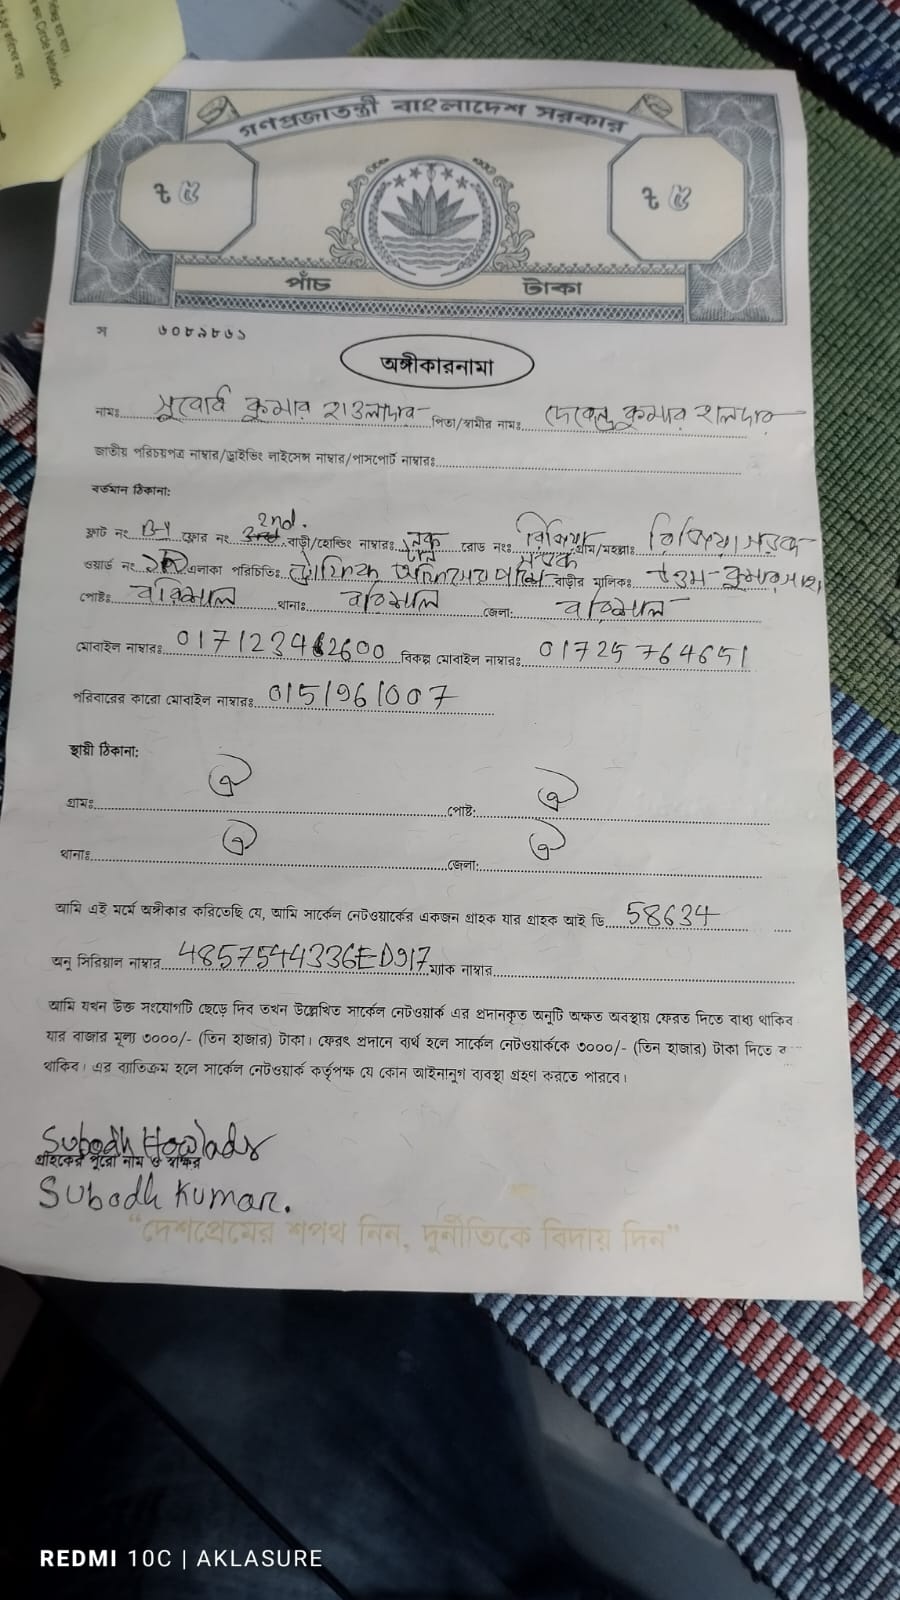 Circle Network
গণপ্রজাতন্ত্রী বাংলাদেশ সরকার
৳ ৫ ৳ ৫
পাঁচ টাকা
স ৬০৮৯৮৬১
অঙ্গীকারনামা
নামঃ সুবোধ কুমার হাওলাদার পিতা/স্বামীর নামঃ দেবেন্দ্র কুমার হালদার
জাতীয় পরিচয়পত্র নাম্বার/ড্রাইভিং লাইসেন্স নাম্বার/পাসপোর্ট নাম্বারঃ
বর্তমান ঠিকানা:
ফ্লাট নং B-4 ফ্লোর নং 2nd. বাড়ী/হোল্ডিং নাম্বারঃ রোড নংঃ গ্রাম/মহল্লাঃ
ওয়ার্ড নং এলাকা পরিচিতিঃ ট্রাফিক অফিসের পাশে বাড়ীর মালিকঃ উত্তম কুমার সাহা
পোষ্টঃ বরিশাল থানাঃ বরিশাল জেলা: বরিশাল
মোবাইল নাম্বারঃ বিকল্প মোবাইল নাম্বারঃ 01725764651
পরিবারের কারো মোবাইল নাম্বারঃ 0151961007
স্থায়ী ঠিকানা:
গ্রামঃ ঐ পোষ্ট: ঐ
থানাঃ ঐ জেলা: ঐ
আমি এই মর্মে অঙ্গীকার করিতেছি যে, আমি সার্কেল নেটওয়ার্কের একজন গ্রাহক যার গ্রাহক আই ডি 58634
অনু সিরিয়াল নাম্বার 4857544336ED917 ম্যাক নাম্বার
আমি যখন উক্ত সংযোগটি ছেড়ে দিব তখন উল্লেখিত সার্কেল নেটওয়ার্ক এর প্রদানকৃত অনুটি অক্ষত অবস্থায় ফেরত দিতে বাধ্য থাকিব
যার বাজার মূল্য ৩০০০/- (তিন হাজার) টাকা। ফেরৎ প্রদানে ব্যর্থ হলে সার্কেল নেটওয়ার্ককে ৩০০০/- (তিন হাজার) টাকা দিতে
থাকিব। এর ব্যাতিক্রম হলে সার্কেল নেটওয়ার্ক কর্তৃপক্ষ যে কোন আইনানুগ ব্যবস্থা গ্রহণ করতে পারবে।
Subodh Howlader
গ্রাহকের পুরো নাম ও স্বাক্ষর
Subodh Kumar.
“দেশপ্রেমের শপথ নিন, দুর্নীতিকে বিদায় দিন”
REDMI 10C | AKLASURE